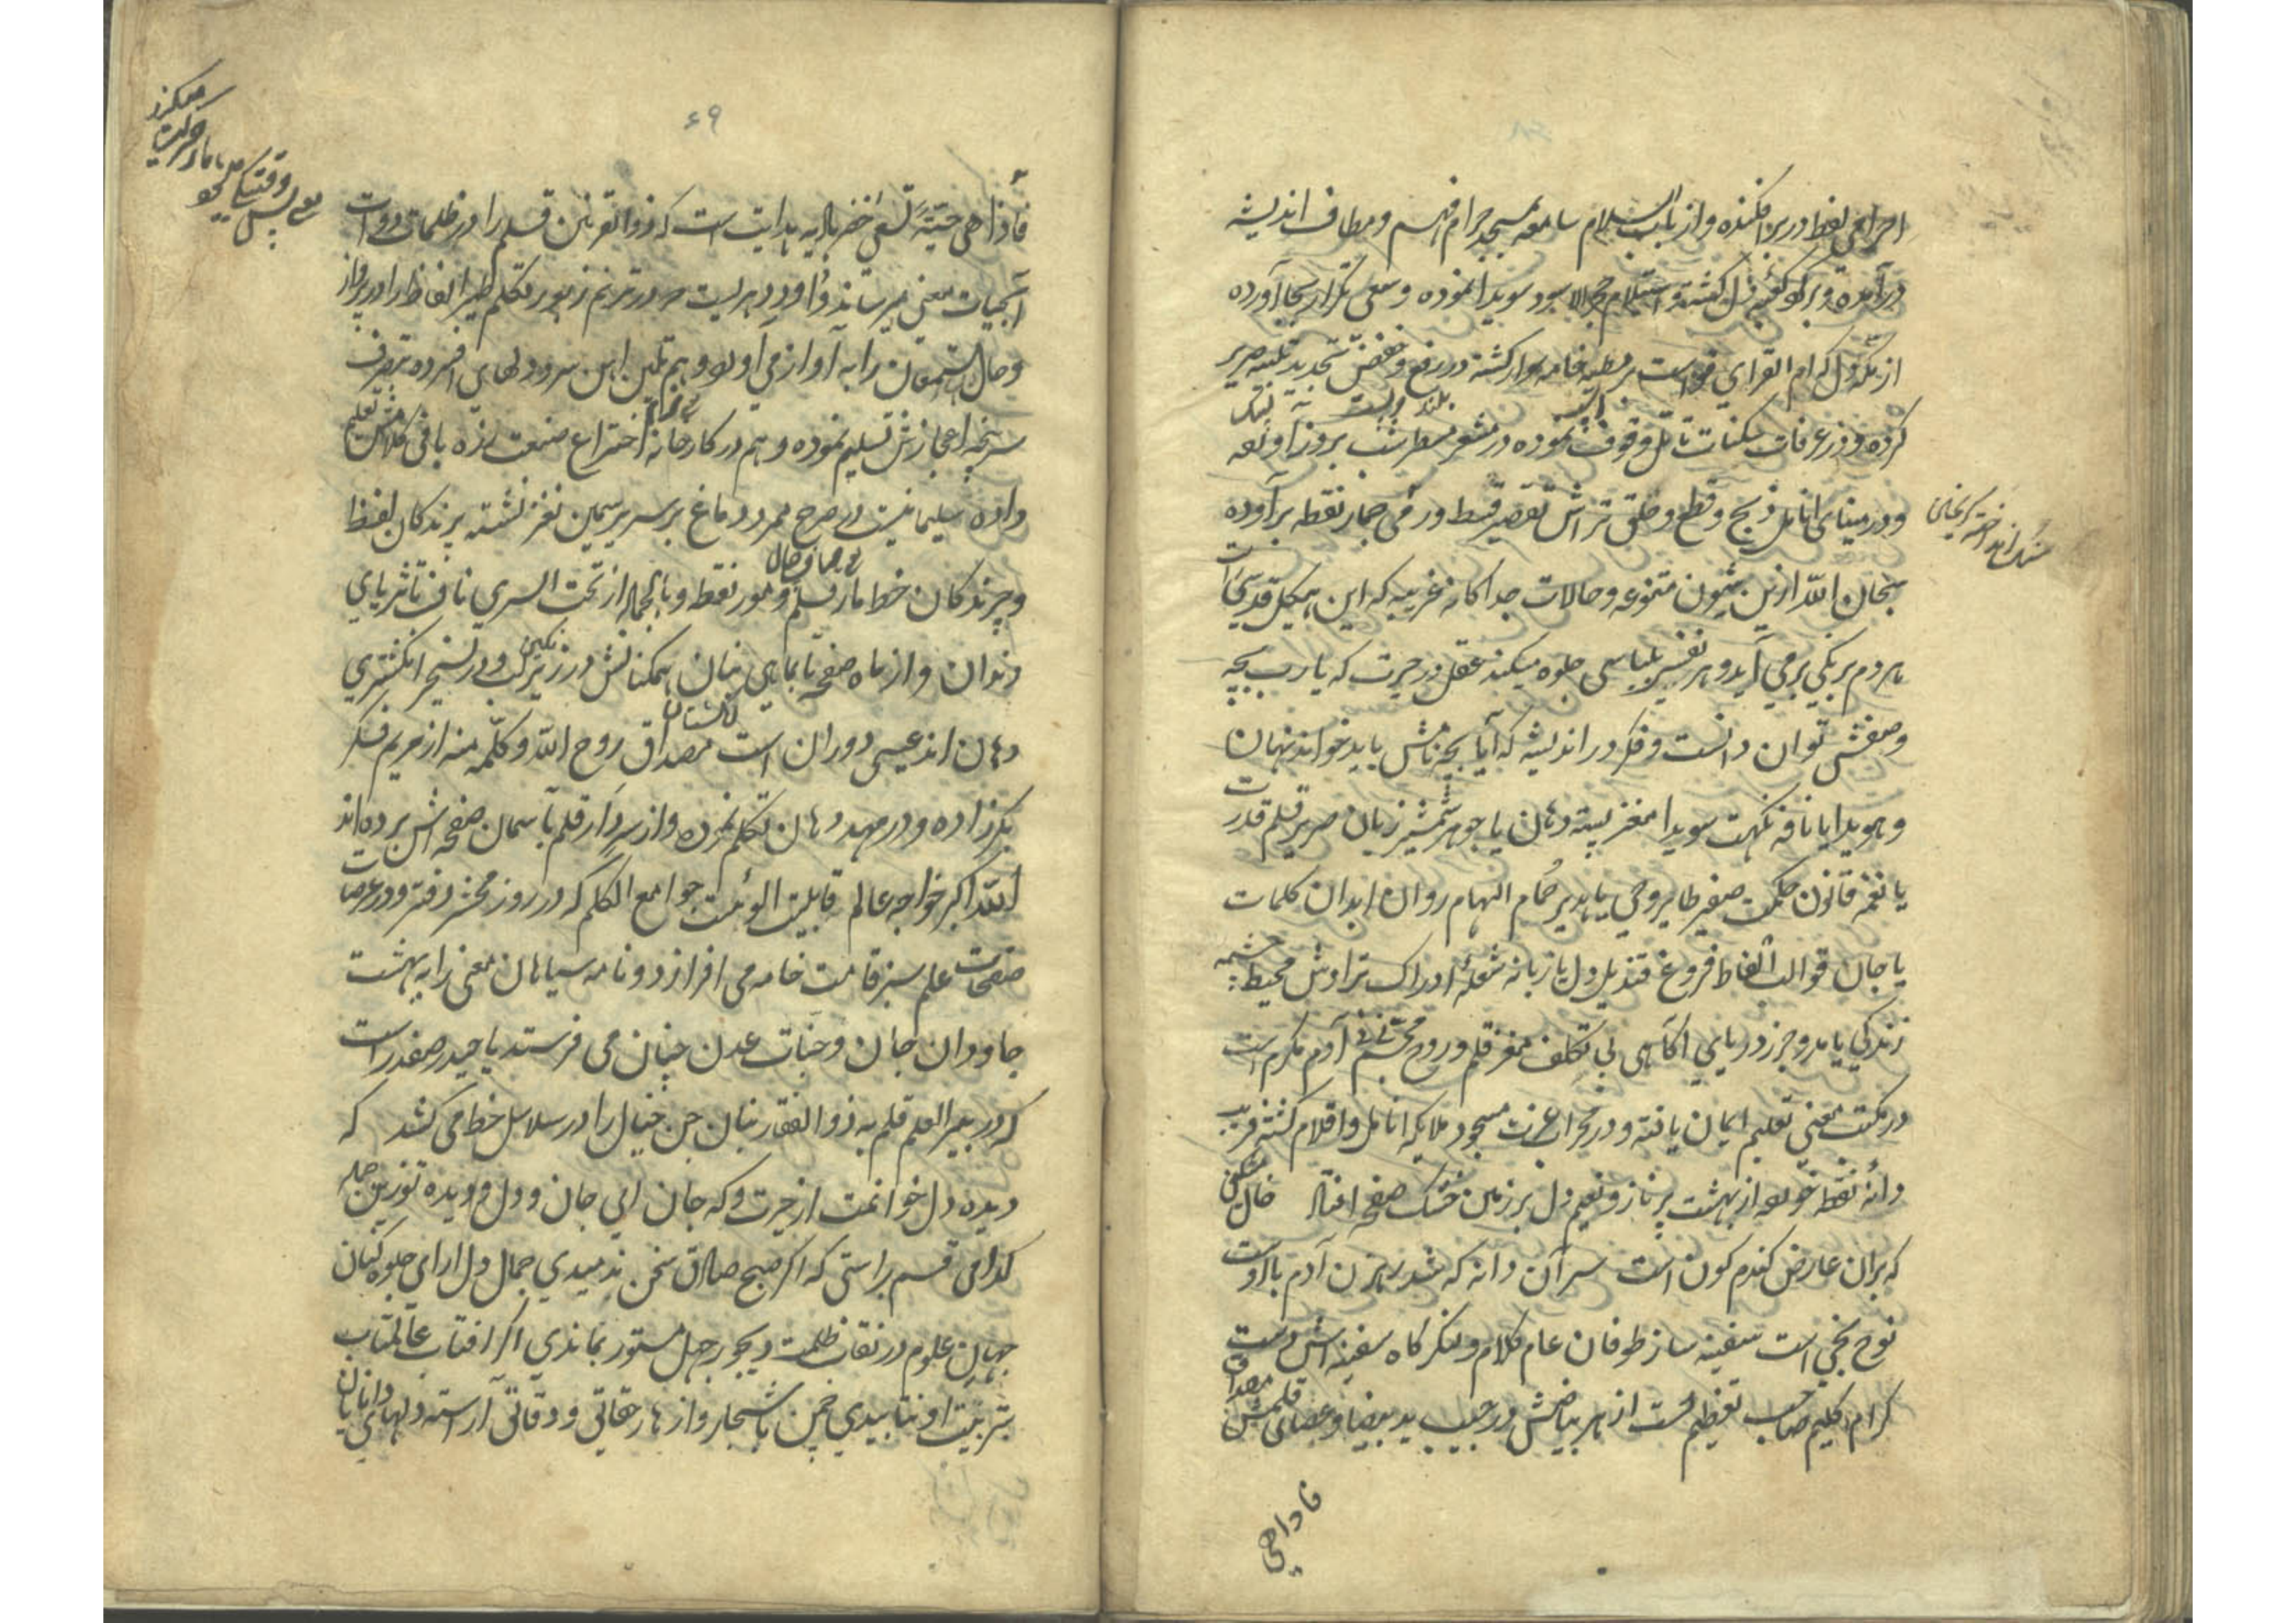 احرامی لفظ در بر افکنده و از باب السلام سامعه بمسجد حرام فهم و مطاف اندیشه
درآمده و بر کوه کعبه دل گشته و استلام حجرالاسود سویدا نموده و سعی تکرار بجا آورده
از مکه دل که ام القرای قوا است بر مطیه خامه سوار گشته در رفع و خفض تجدید تلبیه صریر
بلند و پست
کرده و در عرفات سکنات تامل وقوف نموده در مشعر سطر شب بروز آورده
و در مینای انامل ذبح و قطع و حلق تراش تقصیر قط و رمی جمار نقطه برآورده
سنک انداختن
سبحان الله ازین شیون متنوعه و حالات جداکانه غریبه که این هیکل قدسی را است
هر دم برنکی برمی آید و هر نفس بلباسی جلوه میکند عقل در حیرت که یا رب بچه
وصفش توان دانست و فکر در اندیشه که آیا بچه نامش باید خواند نهان
و هویدا یا نافه نکهت سویدا مغز پسته دهان یا جوهر شمشیر زبان صریر قلم قدرت
یا نغمه قانون حکمت صفیر طایر وحی یا هدیر حمام الهام روان ابدان کلمات
یا جان قوالب الفاظ فروغ قندیل دل یا زبانه شعله ادراک تراوش محیط چشمه
زندکی یا مد و جزر دریای آکاهی بی تکلف مغز قلم و روح مجسم آدم مکرم است
در مکتب معنی تعلیم ایمان یافته و در محراب عزت مسجود ملایکه انامل و اقلام کشته فریب
دانه نقطه خورده از بهشت پر ناز و نعیم دل بر زمین خشک صفحه افتاده خال مشکین
که بران عارض کندم کون است سر آن دانه که شد رهزن آدم با اوست
نوح نجی است سفینه ساز طوفان عام کلام و لنکرگاه سفینه اش دست
کرام کلیم صاحب تعظیم است از هر بیاضش در جیب ید بیضا و عصای قلمش مصداق
فاذا هی
۶۹
فاذا هی حیة تسعی خضر بادیه هدایت است که ذوالقرنین قلم را در ظلمات دوات
آبحیات معنی میرساند داود دهریست در ترنم زبور تکلم طیر الفاظ را در پرواز
و حال مستمعان را به آواز می آورد و هم تلیین این سرود دلهای افسرده بتصرف
سرپنجه اعجازش تسلیم نموده و هم در کارخانه اختراع صنعت زره بافی کلامش تعلیم
داده سلیمانیست در صرح ممرد دماغ بر سریر سیمین نغز نشسته پرندکان لفظ
و چرندکان خط مار قلم و مور نقطه و بالجمله از تحت الثری ناف تا ثریای
دندان و از ماه صفحه تا بماهی بنان همکنانش در زیر نکین و در تسخیر انکشتری
دهان اند عیسی دوران است مصداق روح الله و کلمه منه از مریم فکر
بکر زاده و در مهد دهان تکلم کرده و از سر دار قلم بآسمان صفحه اش برده اند
الله اکبر خواجه عالم قابلیت الوئیت جوامع الکلم که در روز محشر دفتر و در عرصات
صفحات علم سبز قامت خامه می افرازد و نامه سیاهان معنی را به بهشت
جاودان جان و جنات عدن جنان می فرستد یا حیدر صفدر است
که در بیر العلم قلم به ذوالفقار بنان جن خیال را در سلاسل خط می کشد که
دیده دل خوانمت از حیرت و که جان ای جان و دل و دیده تو زین جمله
کدامی قسم براستی که اکر صبح صادق سخن ندمیدی جمال دل ارای جلوه کنان
جهان علوم در نقاب ظلمت دیجور جهل مستور بماندی اکر افتاب عالمتاب
تربیت او نتابیدی چمن باشجار و ازهار حقایق و دقایق آراسته دلهای دانایان